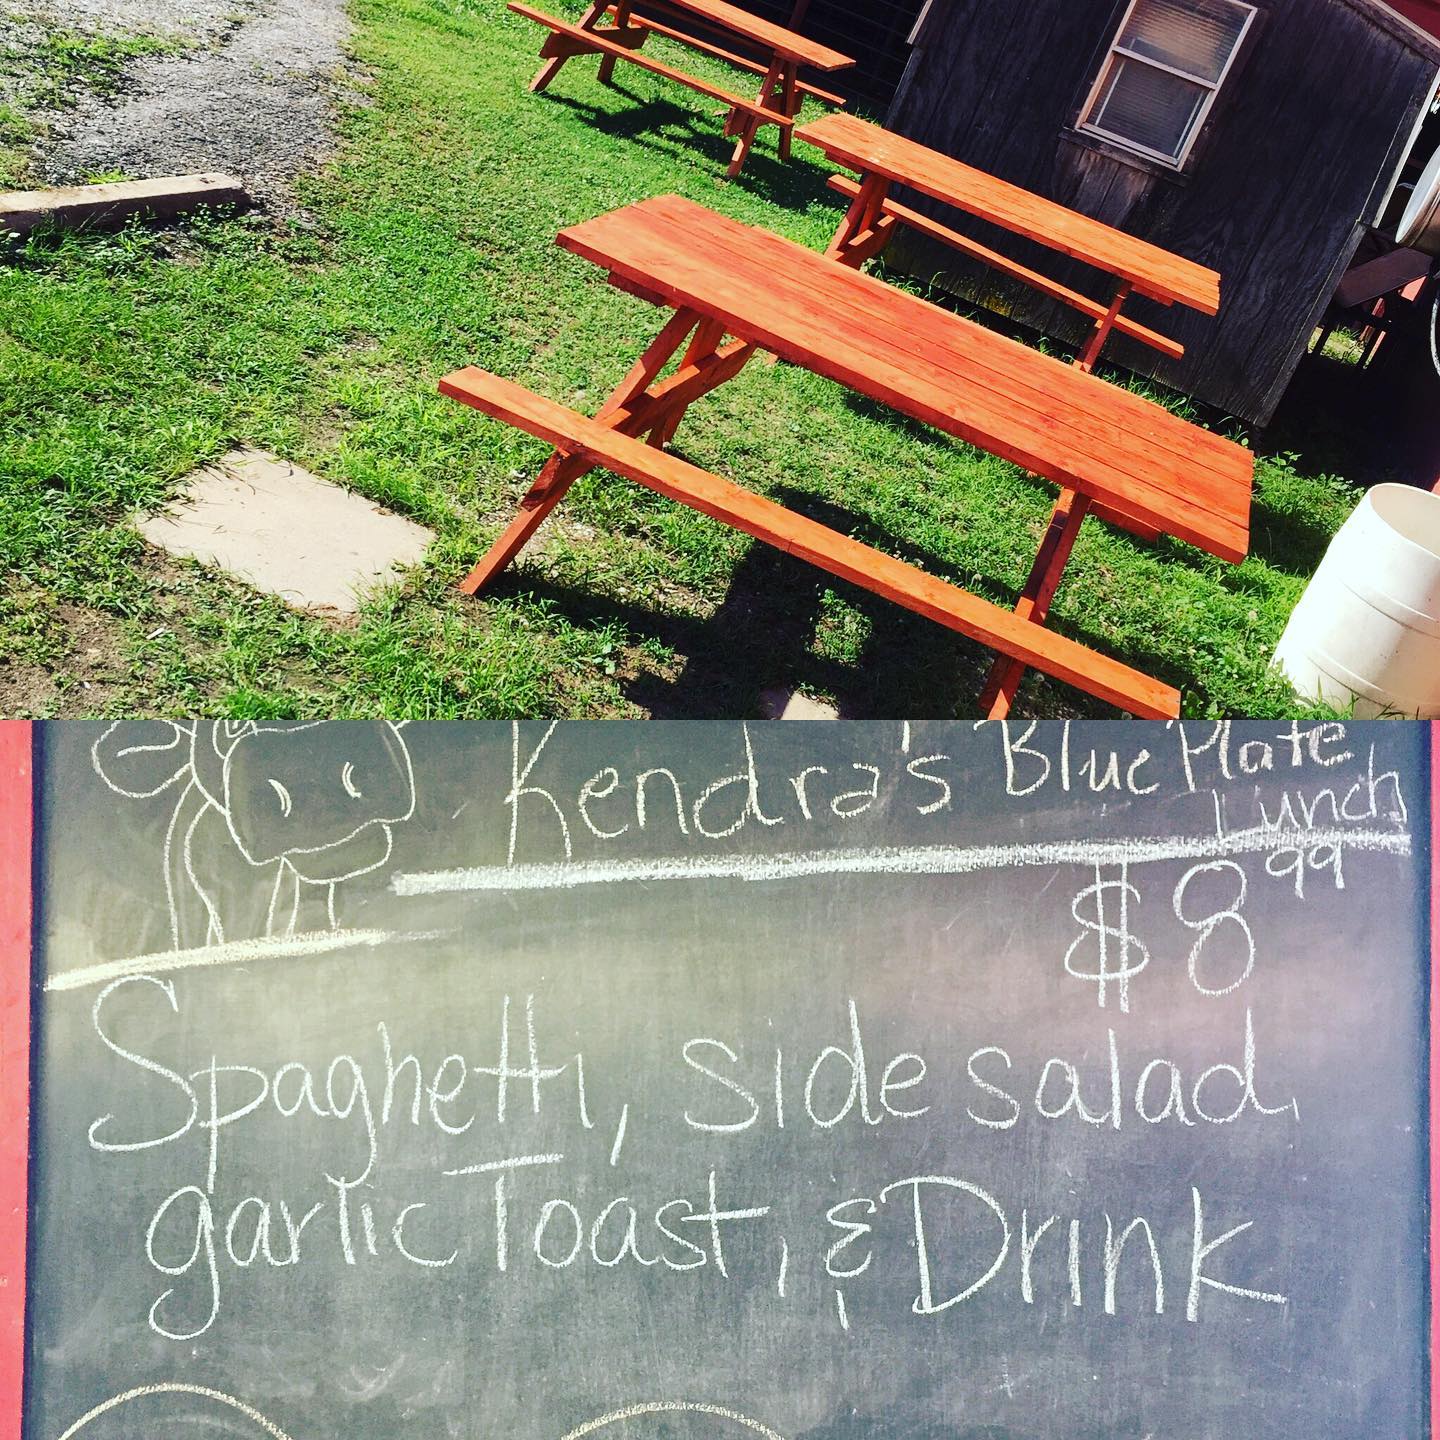 Kendra's Blue Plate
Lunch
$8.99
Spaghetti, side salad,
garlic Toast, & Drink